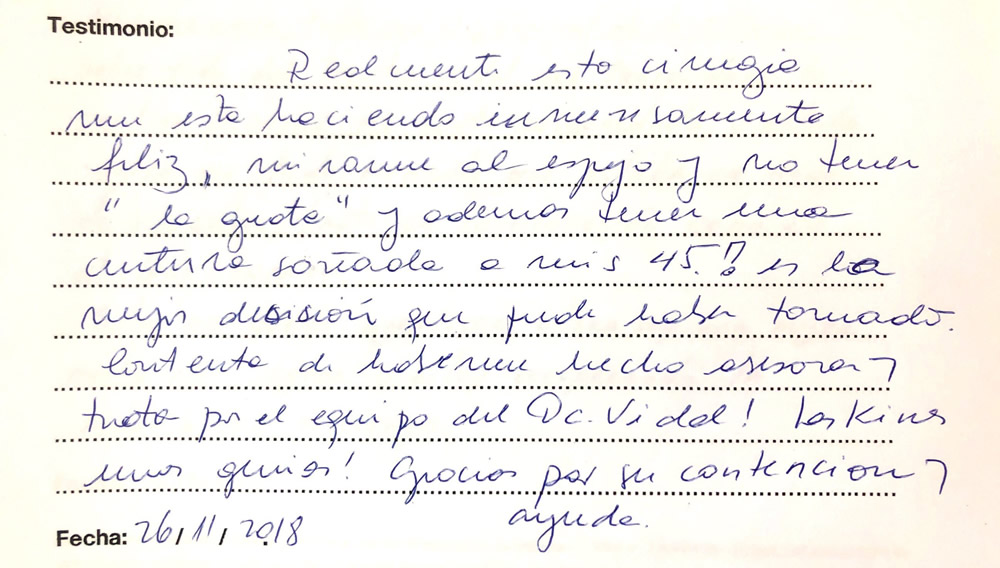 Testimonio:
Realmente esta cirugia
me esta haciendo inmensamente
feliz, mirarme al espejo y no tener
" la guata" y además tener una
cintura soñada a mis 45.! es la
mejor desición que pude haber tomado.
Contenta de haberme hecho asesorar y
trata por el equipo del Dc. Vidal! Las Kines
unas genias! Gracias por su contencion y
ayuda.
Fecha: 26/11/2018